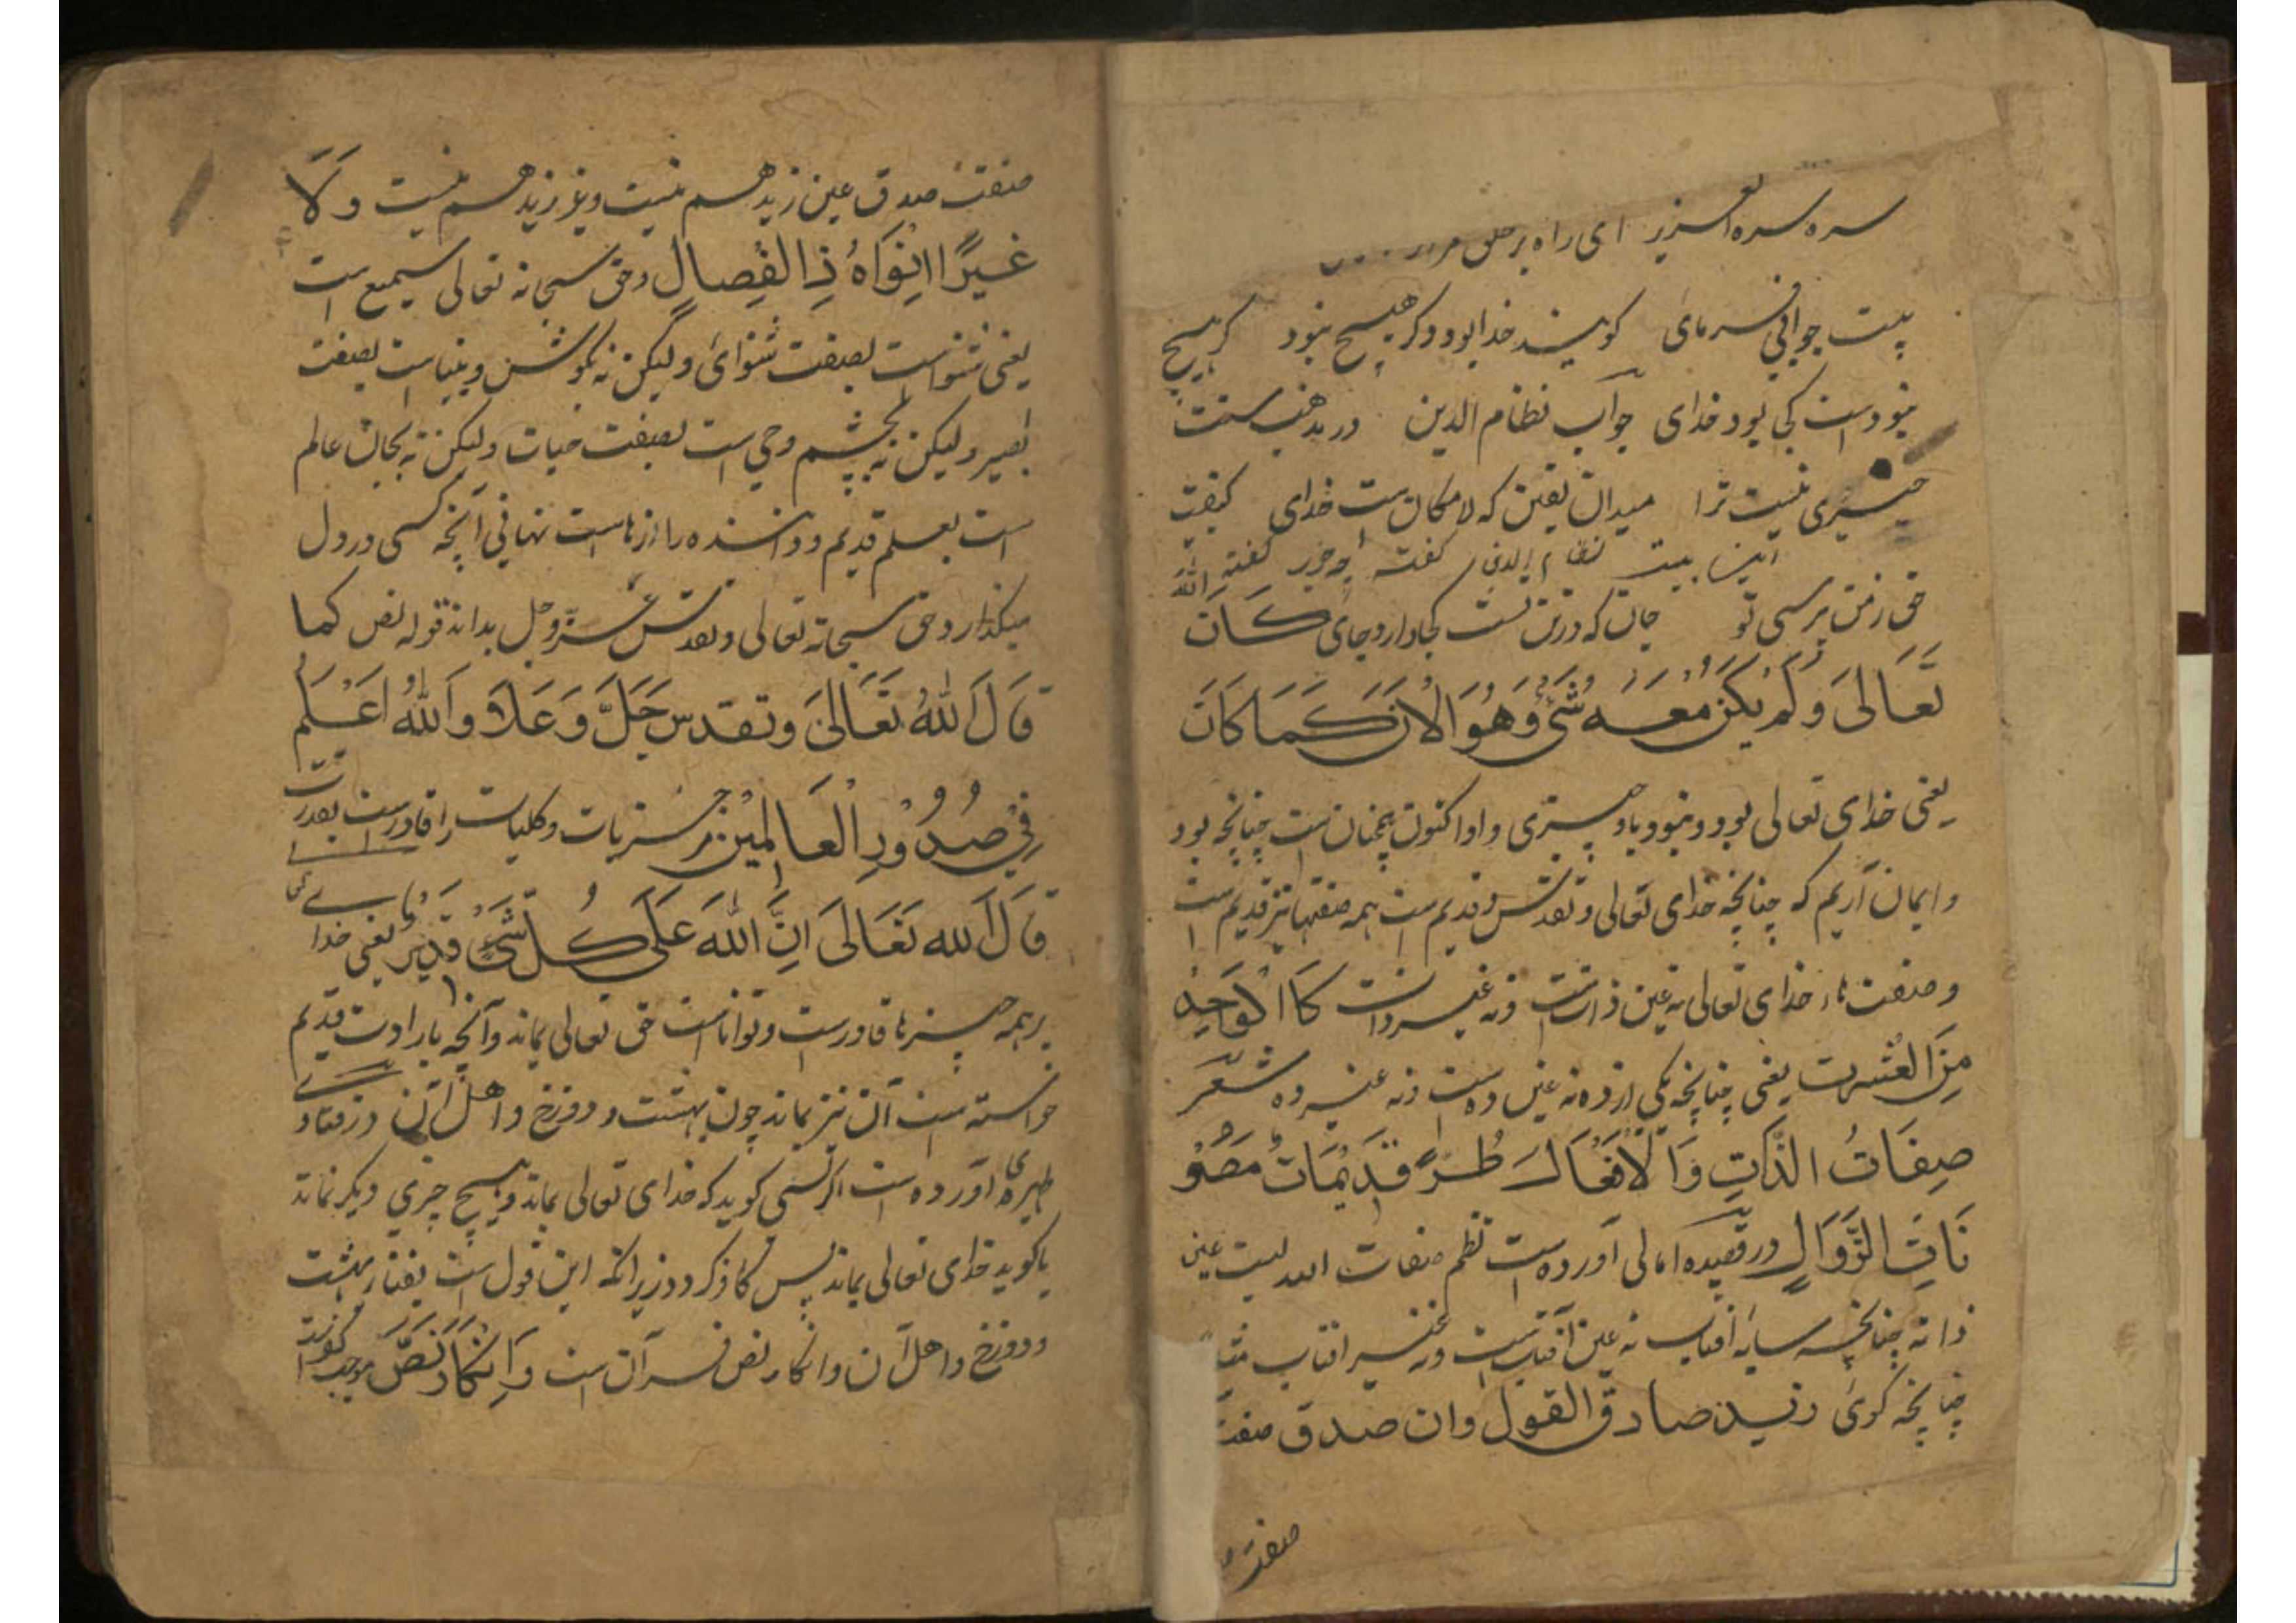 سره سره العزیز ای راه بر حق
بیت جوابی فرمای کویند خدا بود و دکر هیچ نبود کر هیچ
نبودست کی بود خدای جواب نظام الدین در مذهب سنت
چیزی نیست ترا میدان یقین که لامکان ست خدای کیفیت
این بیت نظام الدین کفته
حق زمن پرسی تو جان که در تن تست کجا دارد جای کَانَ اللهُ
تَعَالیَ وَلَمْ یَکُنْ مَعَهُ شَیْءٌ وَهُوَ الْاٰنَ کَمَا کَانَ
یعنی خدای تعالی بود و نبود با و چیزی و او اکنون همچنان ست چنانچه بود
و ایمان آریم که چنانچه خدای تعالی و تقدس قدیم است همه صفتها نیز قدیم است
و صفت ها خدای تعالی نه عین ذات ست و نه غیر ذات کَا الْوَاحِدِ
مِنَ الْعَشَرت یعنی چنانچه یکی از ده نه عین ده ست و نه غیر ده شعر
صِفَاتُ الذَّاتِ وَالْاَفْعَالِ طُرًّا قَدِیْمَاتٌ مَصُوْ
نَاتِ الزَّوَالِ در قصیده امالی آورده ست نظم صفات الله لیست عین
ذاته چنانچه سایه افتاب نه عین افتاب ست و نه غیر افتاب
چنانچه کوئ زید صادق القول وان صدق صفت
صفت
صفت صدق عین زید هم نیست و غیر زید هم نیست وَلَا
غَیْرًا اسِوَاهُ ذِا الْفِصَالِ و حق سبحانه تعالی سمیع است
یعنی شنواست بصفت شنوائ ولیکن نه بکوش و بیناست بصفت
بصیر ولیکن نه بچشم و حی است بصفت حیات ولیکن نه بجان عالم
است بعلم قدیم و داننده رازهاست نهانی آنچه کسی در دل
میکذارد حق سبحانه تعالی و تقدس عزّ وجل بداند قوله نص کما
قَالَ اللهُ تَعَالیَ وتقدس جَلَّ وَعَلَا وَاللهُ اَعْلَمُ
فِیْ صُدُوْرِ الْعَالَمِیْنَ بر جزیات و کلیات را قادرست بقدرت
قَالَ الله تَعَالیَ اِنَّ اللهَ عَلَی کُلِّ شَیْءٍ قَدِیْرٌ یعنی خدا
برهمه چیزها قادرست و تواناست حق تعالی بماند و آنچه بارادت قدیم
خواسته است آن نیز بماند چون بهشت و دوزخ و اهل آن در فتاو
ظهیری آورده است اکر کسی کوید که خدای تعالی بماند و هیچ چیزی دیکر نماند
یا کوید خدای تعالی بماند پس کافر کردد زیرا که این قول است بفنار بهشت
و دوزخ و اهل آن و انکار نص قرآن ست وَاِنْکَارُ نَصّ موجب کفرست